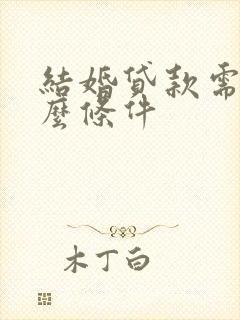 結婚貸款需
麼條件
木丁白